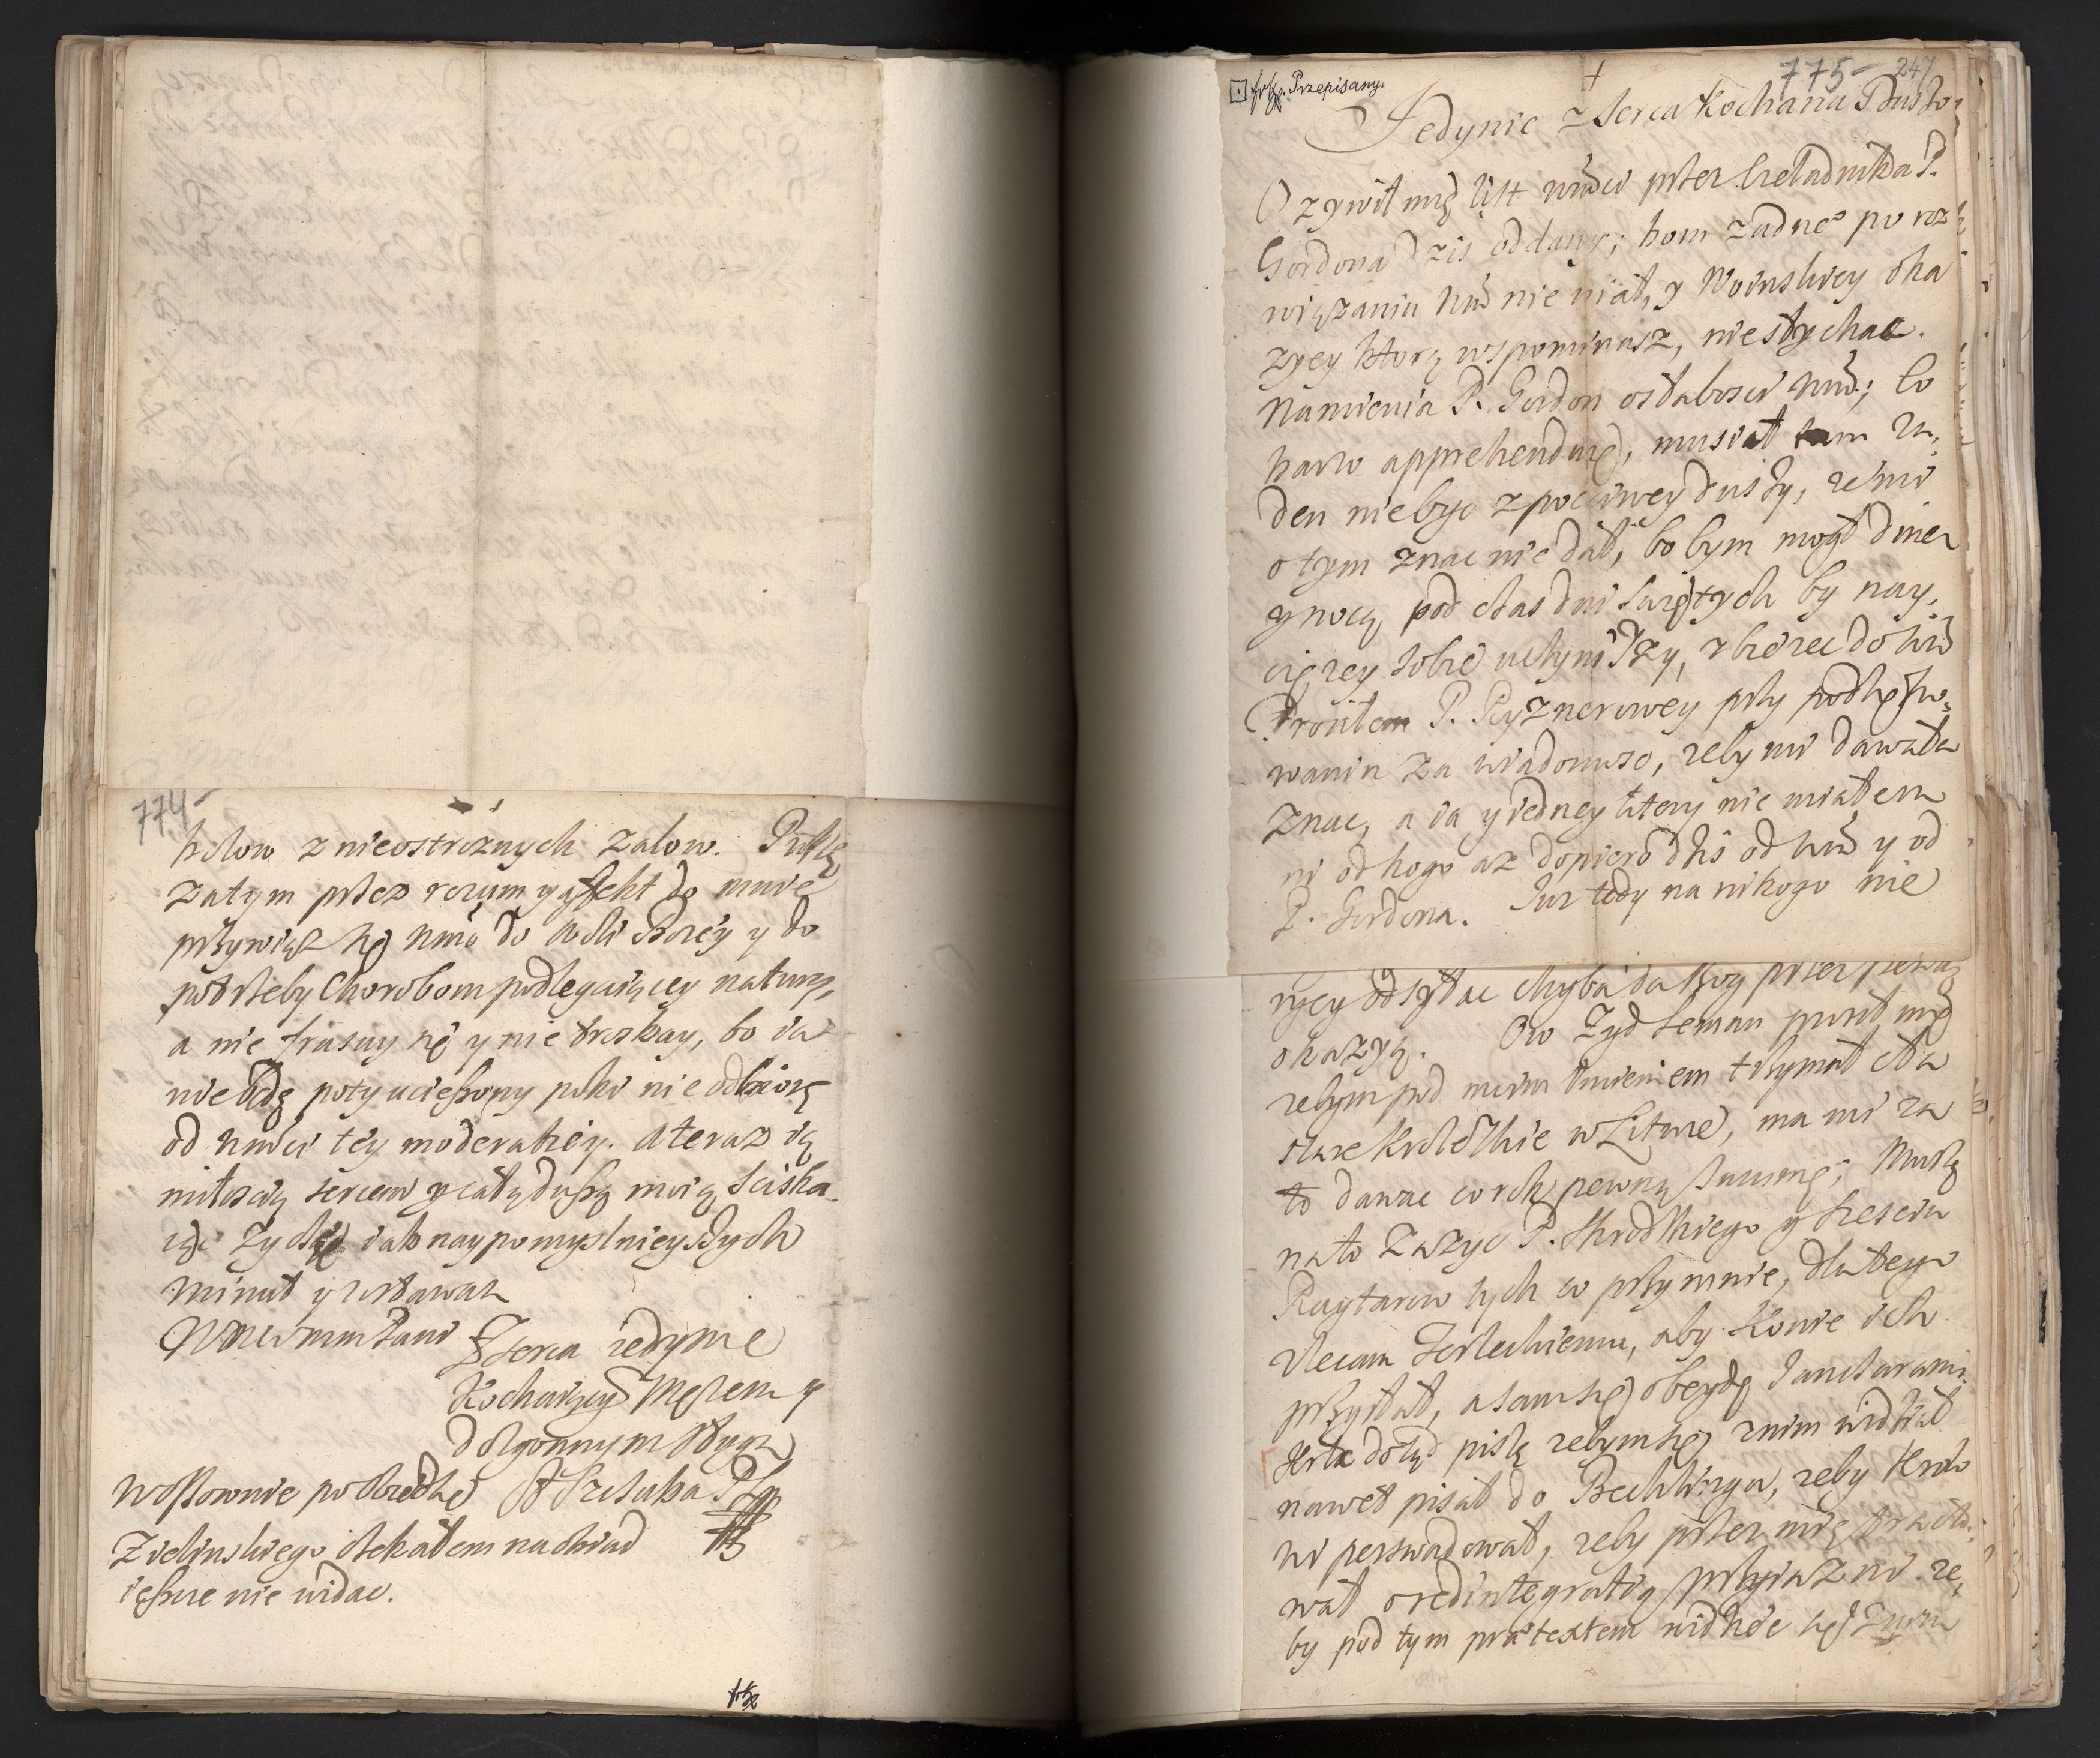 774
kolow z nieostrożnych żalow. Proszę
zatym przez rozum y affekt do mnie
przywiąż się Wmć do woli Bozey y do
potrzeby Chorobom podlegaiącey natury,
a nie frasuy się y nie troskay, bo ia
nie będę poty ucieszony poki nie odbiorę
od Wmści tey moderatiey. A teraz ią
miłoscią sercem y całą duszą moią sciska
iąc zyczę iak naypomyslnieyszych
minut y zostawam
Wmci mm Pani Z serca iedynie
Kochaiący Mężem y
dozgonnym sługą
Włostowie po Obiedzie A Szczuka PL
Zielinskiego czekałem na obiad
ieszcze nie widac.
frp
775 247
frp. Przepisany.
Jedynie z serca Kochana Duszko
Ozywił mię list Wmści przez Czeladnika P.
Gordona dzis oddany; bom zadnego po roz
wiązaniu Wmści nie miał, y Woinskiey oka
zyey ktorą wspominasz, nie słychac.
Namienia P. Gordon o słabosci Wmści; co
barzo apprehenduię, musiał tam za,
den niebyc z poczciwey duszy, że mi
o tym znac nie dał, bo bym mogł dniem
y nocą, pod czas dni swiętych by nay,
cięzey sobie uczyniwszy, zbiezec do Wmści
Prosiłem P. Ryznerowey przy podzięko,
waniu za wiadomosc, zeby mi dawała
znac, a ia y iedney litery nie miałem
ni od kogo az dopiero dzis od Wmści y od
P. Gordona. Iuz tedy na nikogo nie
rzey odsyłac chyba da Bog przez pewną
okazyą. Ow Zyd Leman prosił mię
zebym pod moim Imieniem trzymał cła
stare Krolewskie w Litwie, ma mi za
to dawac co rok pewną summę; Muszę
na to zazyc P. Skrodzkiego y szesciu
Raytarow tych co przy mnie, dlatego
zlecam Zerlechiemu, aby Konie ich
przysłał, a sam się obeydę Janczarami.
Krola dotąd piszę zebym się z nim widział
nawet pisał do Bechlinga, zeby Krolo
wi perswadował, zeby przez mię tracto,
wał o redintegratią przyiazni. ze,
by pod tym praetextem widziec się z nim